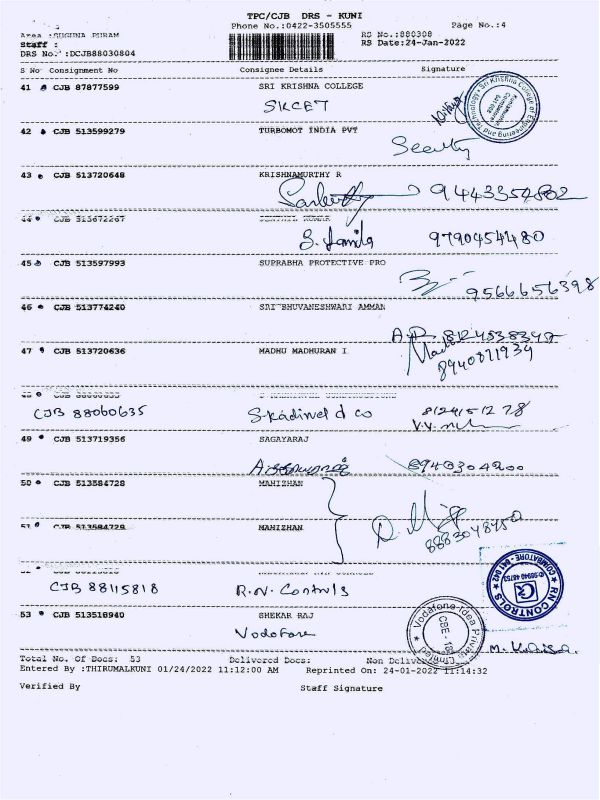 TPC/CJB DRS - KUNI
Phone No.:0422-3505555 Page No.:4
Area :SUGUNA PURAM RS No.:880308
Staff : RS Date:24-Jan-2022
DRS No. :DCJB88030804
S No Consignment No Consignee Details Signature
41 CJB 87877599 SRI KRISHNA COLLEGE
SKCET
Sri Krishna College of Engineering and Technology
Kuniamuthur Coimbatore 641 008
42 CJB 513599279 TURBOMOT INDIA PVT
43 CJB 513720648 KRISHNAMURTHY R
9443354802
44 CJB 513672267 SENTHIL KUMAR
9790454480
45 CJB 513597993 SUPRABHA PROTECTIVE PRO
9566656398
46 CJB 513774240 SRI BHUVANESHWARI AMMAN
47 CJB 513720636 MADHU MADHURAN I
48
CJB 88060635 S.kadirvel & co
49 CJB 513719356 SAGAYARAJ
8940304200
50 CJB 513584728 MAHIZHAN
51 CJB 513584729 MAHIZHAN
CJB 88115818 R.N. Controls
RN CONTROLS COIMBATORE - 641 042
53 CJB 513518940 SHEKAR RAJ
Vodafone
Vodafone Idea Private Limited CBE - 18
Total No. Of Docs: 53 Delivered Docs: Non Delivered
Entered By :THIRUMALKUNI 01/24/2022 11:12:00 AM Reprinted On: 24-01-2022 11:14:32
Verified By Staff Signature